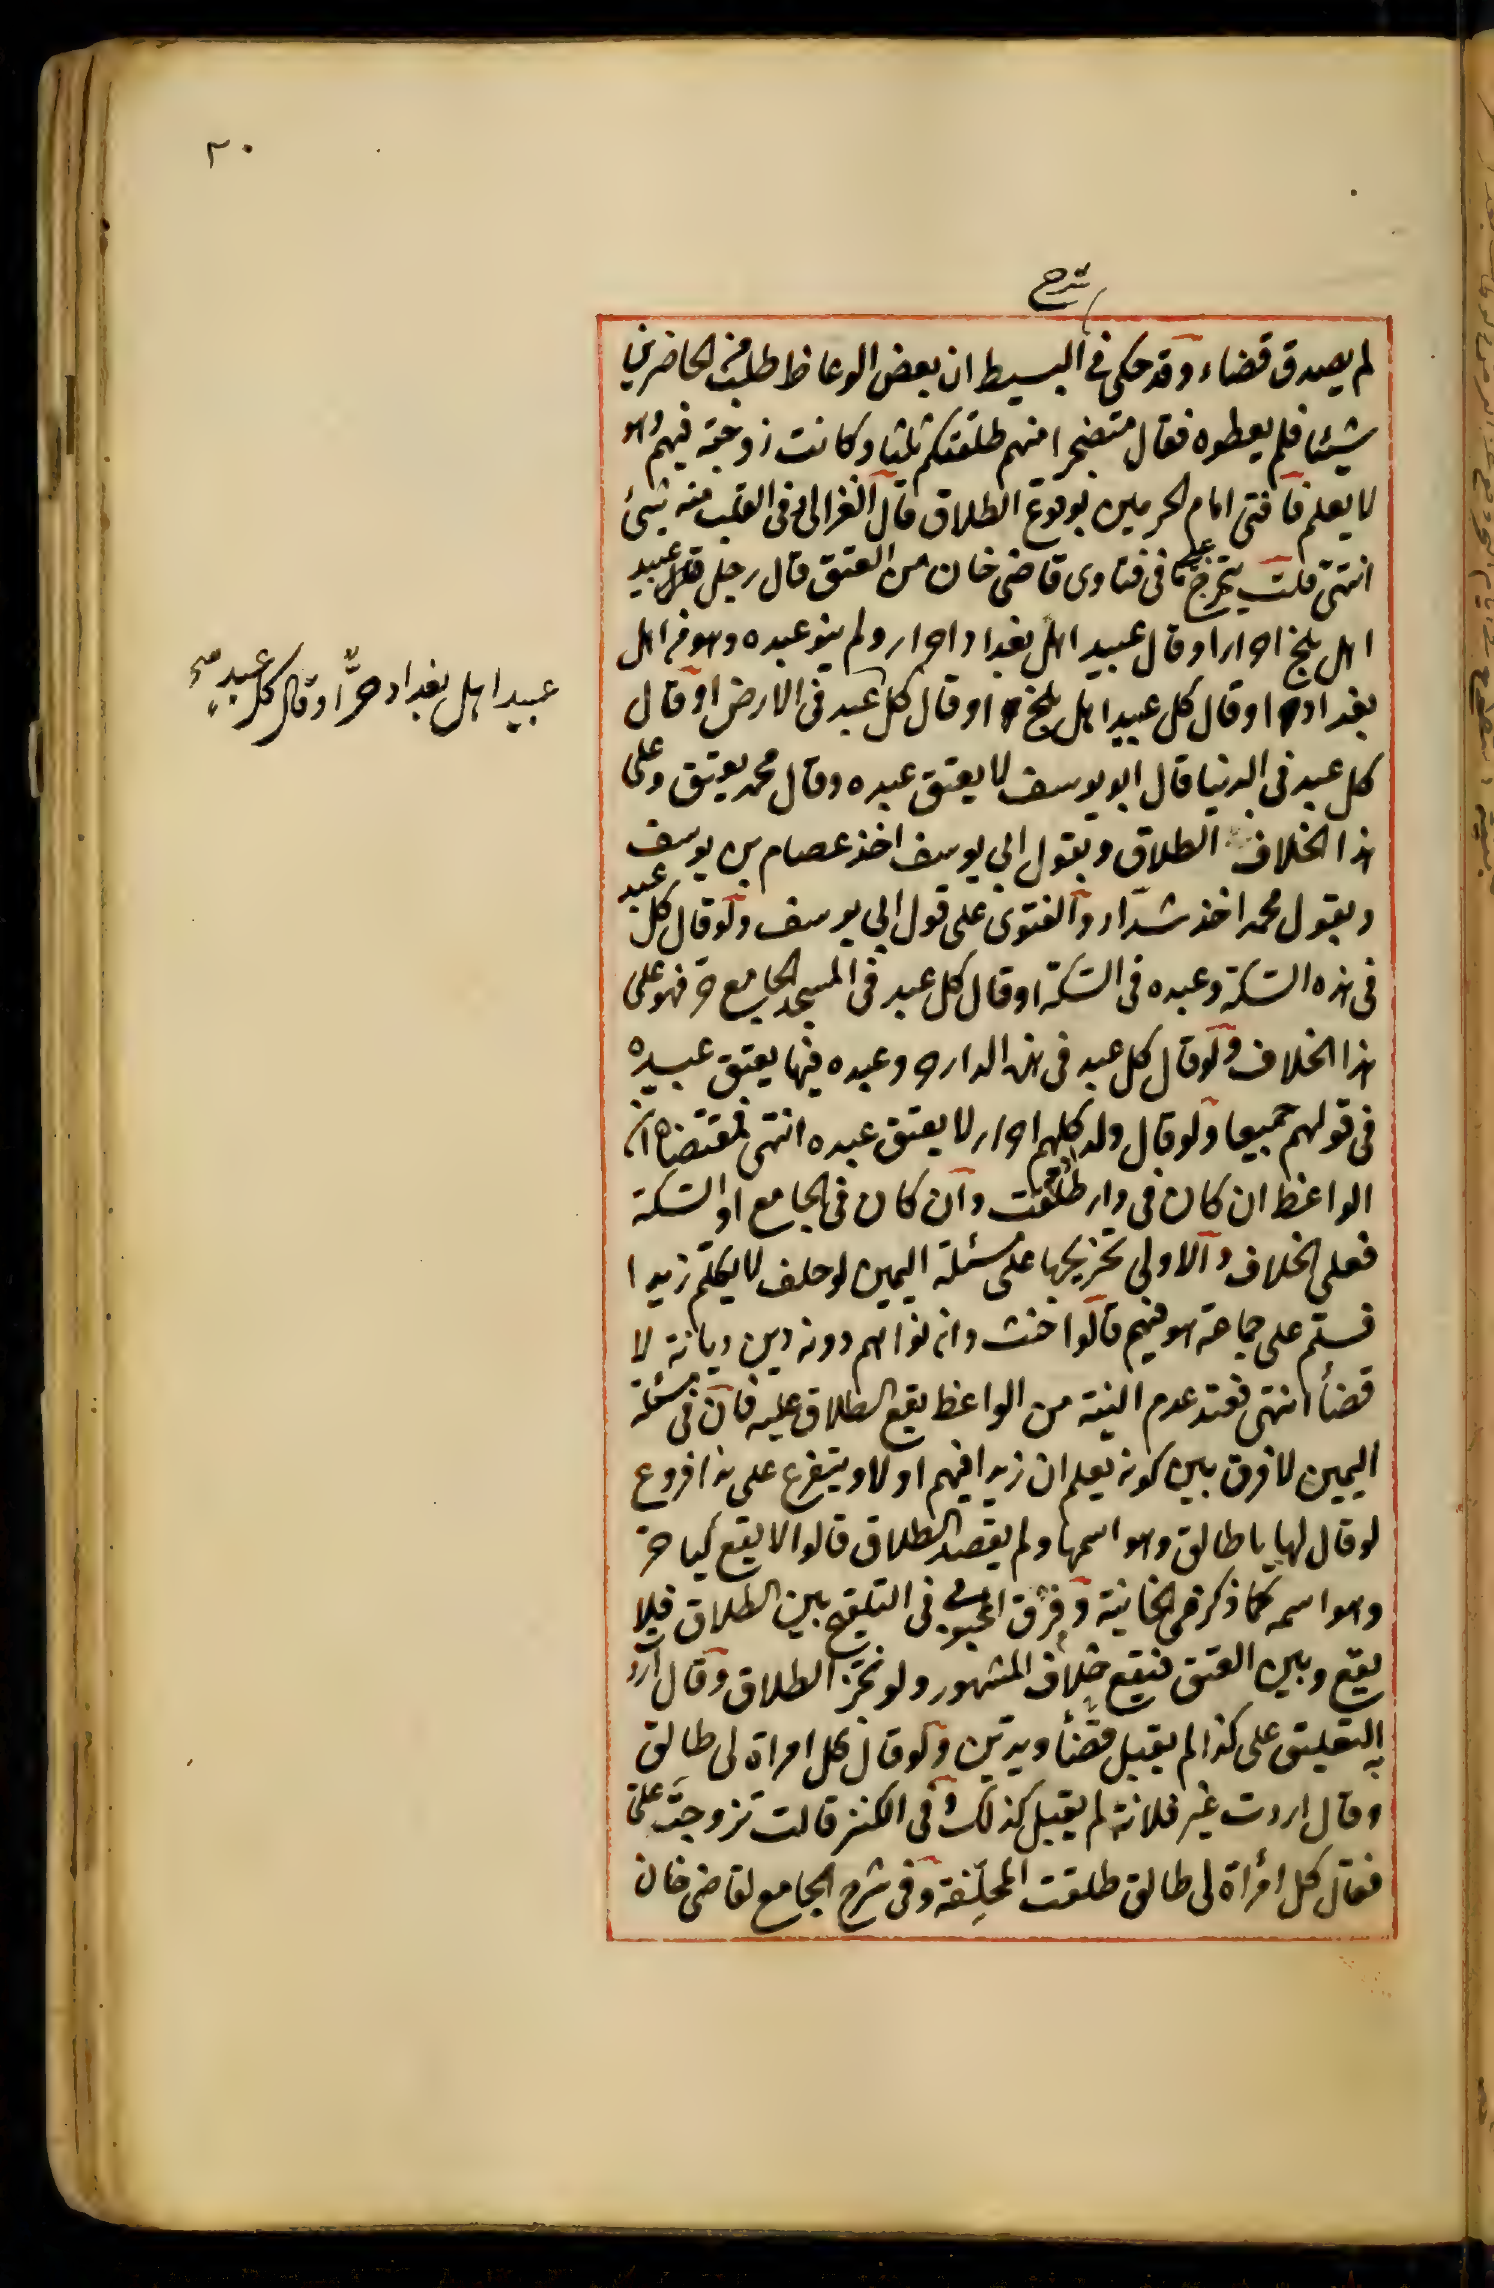 ٣٠
شرح
لم يصدق قضاء وقد حكى فى البسيط ان بعض الوعاظ طلب من الحاضرين
شيئا فلم يعطوه فقال متضجرا منهم طلقتكم ثلثا وكانت زوجته فيهم وهو
لا يعلم فافتى امام الحرمين بوقوع الطلاق قال الغزالى وفى القلب منه شئ
انتهى قلت يتخرج على ما فى فتاوى قاضى خان من العتق قال رجل قال عبيد
اهل بلخ احرار او قال عبيد اهل بغداد احرار ولم ينو عبده وهو من اهل
بغداد او قال كل عبيد اهل بلخ او قال كل عبد فى الارض او قال
عبيد اهل بغداد حرّ او قال كل عبد صح
كل عبد فى الدنيا قال ابو يوسف لا يعتق عبده وقال محمد يعتق وعلى
هذا الخلاف الطلاق وبقول ابى يوسف اخذ عصام بن يوسف
وبقول محمد اخذ شدّاد والفتوى على قول ابى يوسف ولو قال كل عبد
فى هذه السكة وعبده فى السكة او قال كل عبد فى المسجد الجامع حر فهو على
هذا الخلاف ولو قال كل عبد فى هذه الدار حر وعبده فيها يعتق عبيده
فى قولهم جميعا ولو قال ولد كلهم احرار لا يعتق عبده انتهى فمقتضاه ان
الواعظ ان كان فى دار طلقت وان كان فى الجامع او السكة
فعلى الخلاف والاولى تخريجها على مسئلة اليمين لو حلف لا يكلم زيدا
فسلّم على جماعة هو فيهم قالوا حنث وان نواهم دونه دين ديانة لا
قضأ انتهى فعند عدم النية من الواعظ يقع الطلاق عليه فان فى مسئلة
اليمين لا فرق بين كونه يعلم ان زيدا فيهم او لا ويتفرع على هذا فروع
لو قال لها يا طالق وهو اسمها ولم يقصد الطلاق قالوا لا يقع كيا حر
وهو اسمه كما ذكر فى الخانية وفرق المحبوبى فى التلقيح بين الطلاق فلا
يقع وبين العتق فيقع خلاف المشهور ولو نجّز الطلاق وقال اردت
به التعليق على كذا لم يقبل قضأ ويديّن ولو قال كل امراة لى طالق
وقال اردت غير فلانة لم يقبل كذلك وفى الكنز قالت تزوجت علىّ
فقال كل امرأة لى طالق طلقت المحلّفة وفى شرح الجامع لقاضى خان